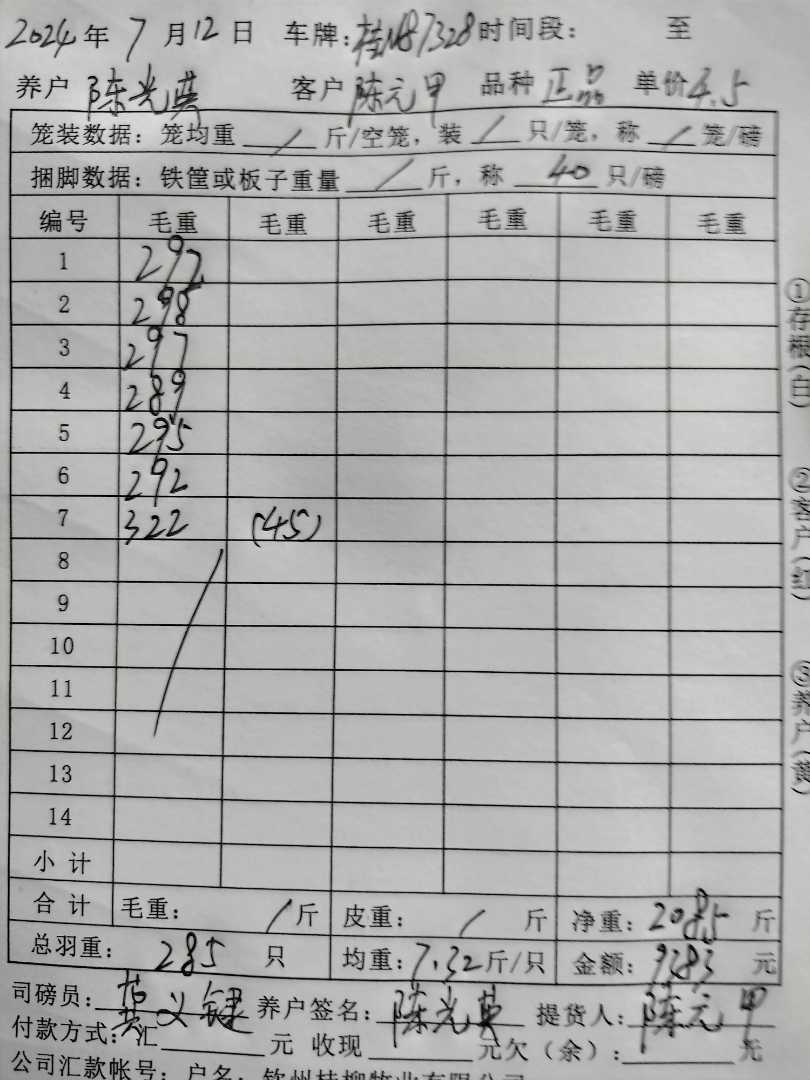 2024年 7月12日 车牌：桂N87328 时间段： 至
养户 陈光英 客户 陈元甲 品种 正品 单价4.5
笼装数据：笼均重 / 斤/空笼，装 / 只/笼，称 / 笼/磅
捆脚数据：铁筐或板子重量 / 斤，称 40 只/磅
编号 毛重 毛重 毛重 毛重 毛重 毛重
1 292
2 298
3 297
4 289
5 295
6 292
7 322 (45)
8
9
10
11
12
13
14
小计
合计 毛重： / 斤 皮重： / 斤 净重：2085 斤
总羽重： 285 只 均重：7.32斤/只 金额：9383 元
司磅员：黄义键 养户签名：陈光英 提货人：陈元甲
付款方式：汇 元 收现 元欠（余）： 元
公司汇款帐号：户名：钦州桂柳牧业有限公司
①存根（白） ②客户（红） ③养户（黄）